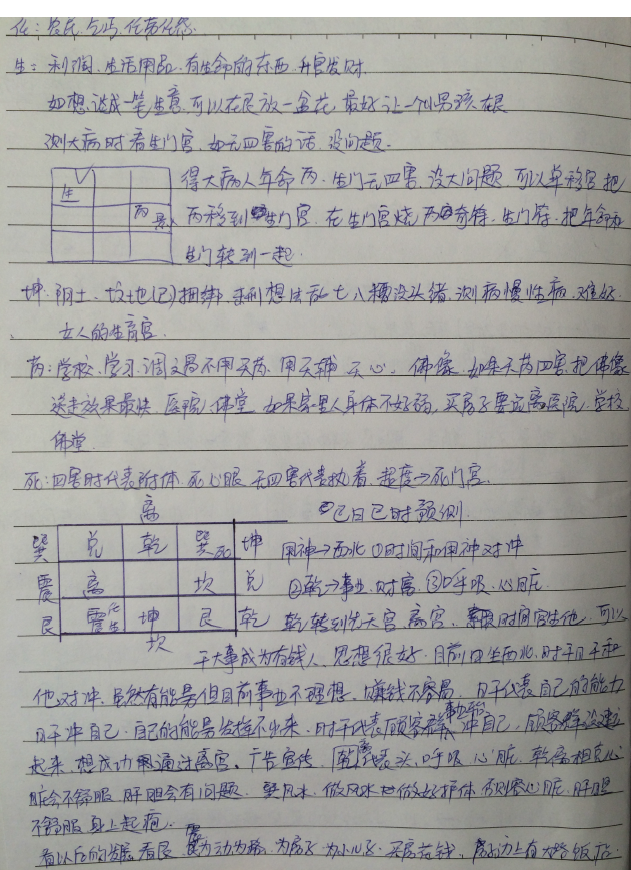 任：农民，乞丐，任劳任怨
生：利润，生活用品，有生命的东西，升官发财
如想谈成一笔生意，可以在艮放一盆花，最好让一个小男孩在艮
测大病时看生门宫，如无四害的话，没问题。
得大病人年命丙，生门无四害，没大问题，可以单移宫把
生
丙 景
丙移到生门宫，在生门宫烧丙奇符，生门符，把年命和
生门转到一起
坤：阴土、坟地(己)捆绑，击刑想法乱七八糟没头绪，测病慢性病，难好
女人的生育宫
芮：学校，学习，调文昌不用天芮，用天辅，天心，佛像，如果天芮四害，把佛像
送走效果最快，医院，佛堂，如果家里人身体不好弱，买房子要远离医院，学校
佛堂
死：四害时代表附体，死心眼，无四害代表执着，超度→死门宫
离
巽 兑 乾 巽死 坤
己日己时预测
用神→西北①时间和用神对冲
震 离 坎 兑
②乾→事业，财富，③呼吸，心脏
艮 震 生 坤 艮 乾
坎
乾转到先天宫离宫，时间宫生他，可以
干大事成为有钱人，思想很好，目前日生西北，时干日干和
他对冲，虽然有能量但目前事业不理想，赚钱不容易，日干代表自己的能力
日干冲自己，自己的能量发挥不出来，时干代表顾客群冲自己，顾客群没建立
起来，想成功通过离宫，广告宣传，乾代表头，呼吸，心脏，乾离相克心
脏会不舒服，肝胆会有问题，巽风水，做风水做好护体，否则会心脏，肝胆
不舒服，身上起疱
看以后的发展看艮，震为动为 为房子，为小儿子，买房花钱，房子边上有大桥饭店